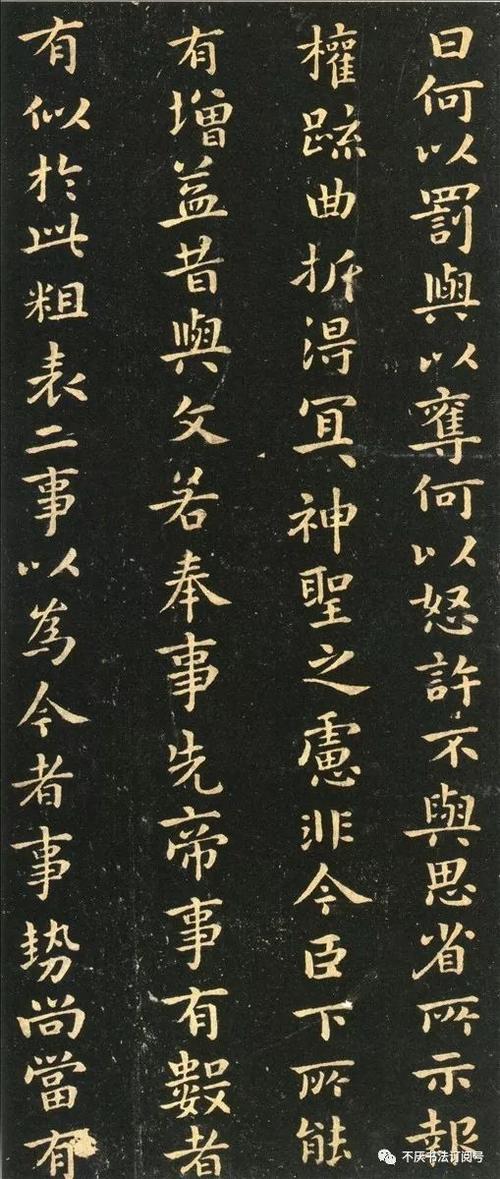 曰何以罰與以奪何以怒許不與思省所示報
權疏曲折得冝神聖之慮非今臣下所能
有增益昔與文若奉事先帝事有數者
有似於此粗表二事以為今者事勢尚當有
不厌书法订阅号